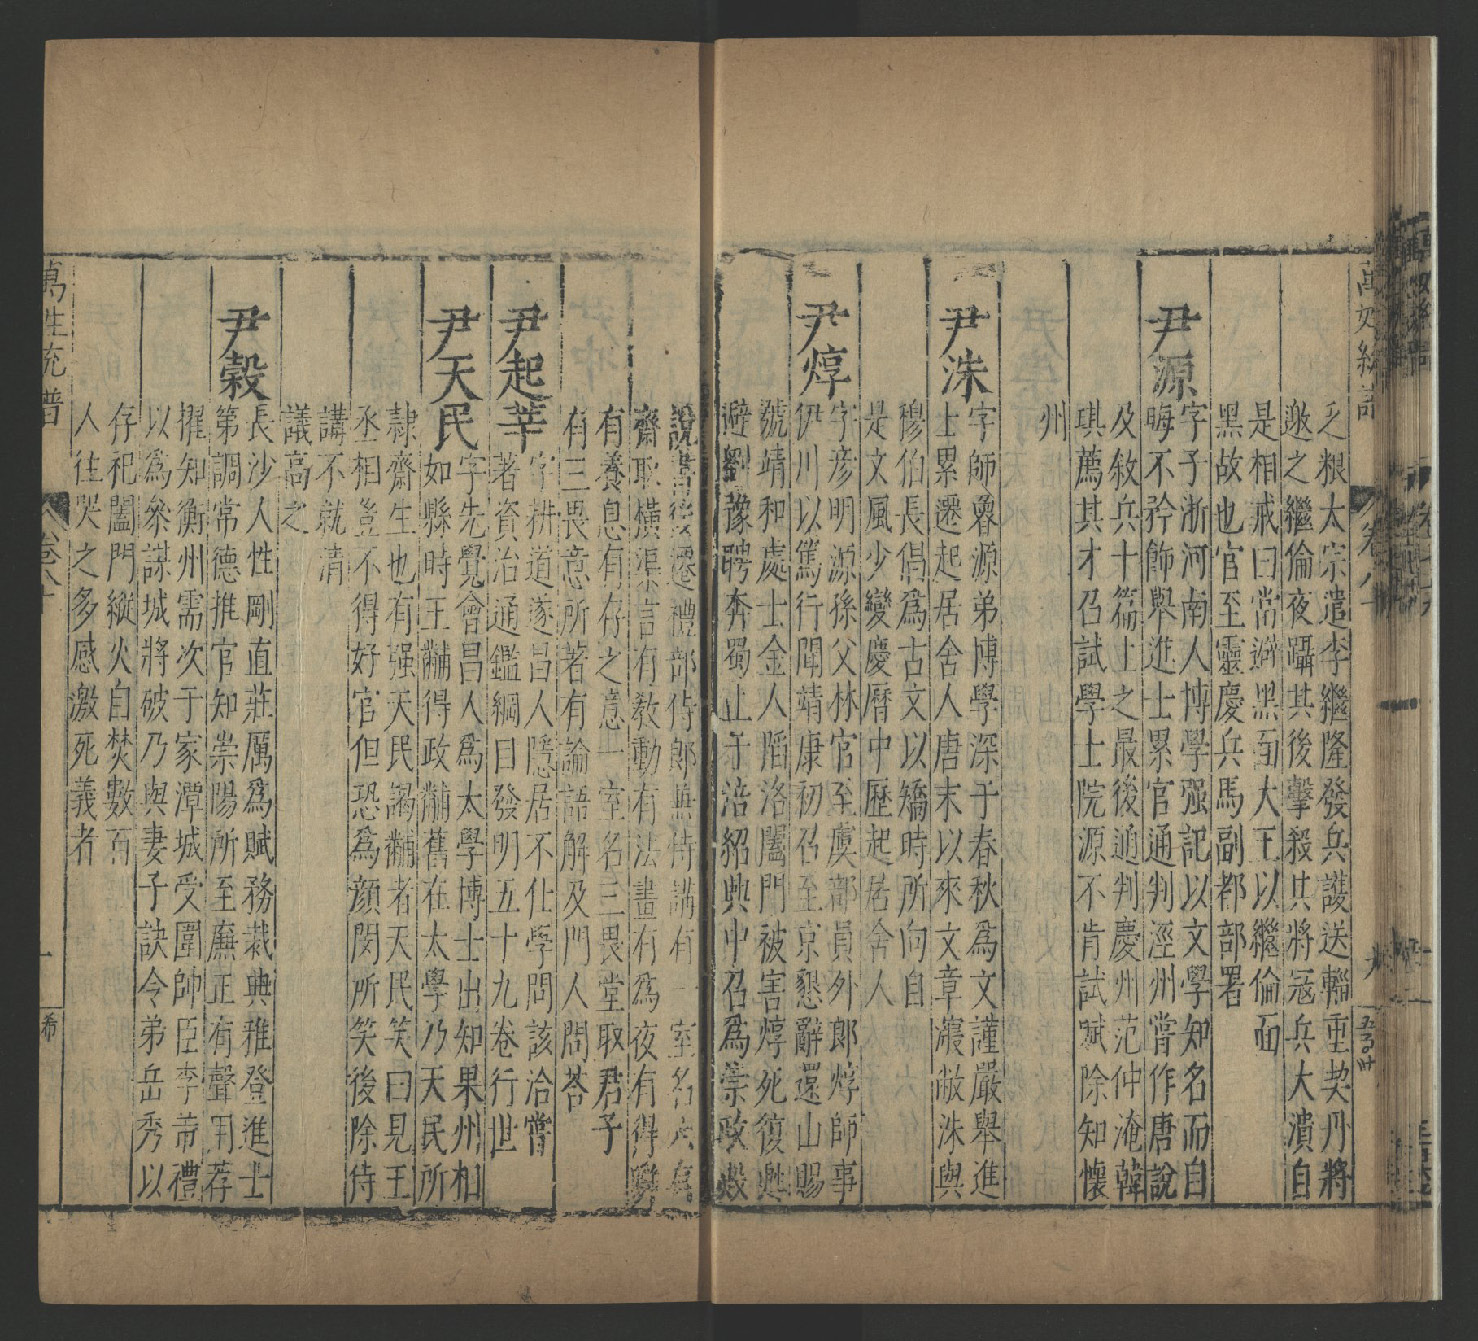 乏粮太宗遣李繼隆發兵護送輜重契丹將
邀之繼倫夜躡其後擊殺其將冦兵大潰自
是相戒曰當避黑面大王以繼倫面
黑故也官至靈慶兵馬副都部署
尹源
字子浙河南人博學强記以文學知名而自
晦不矜飾舉進士累官通判涇州嘗作唐說
及敘兵十篇上之最後通判慶州范仲淹韓
琪薦其才召試學士院源不肯試賦除知懷
州
尹洙
字師魯源弟博學深于春秋為文謹嚴舉進
士累遷起居舍人唐末以來文章瀼敝洙與
穆伯長倡為古文以矯時所向自
是文風少變慶曆中歷起居舍人
尹焞
字彦明源孫父林官至虞部員外郎焞師事
伊川以篤行聞靖康初召至京懇辭還山賜
號靖和處士金人陷洛闔門被害焞死復甦
避劉豫聘奔蜀止于涪紹典中召為崇政殿
說書後遷禮部侍郎兼侍講有一室名六有
齋取横渠言有教動有法畫有為夜有得瞬
有養息有存之意一室名三畏堂取君子
有三畏意所著有論語解及門人問荅
尹起莘
字耕道遂昌人隱居不仕學問該洽嘗
著資治通鑑綱目發明五十九卷行世
尹天民
字先覺會昌人為太學博士出知果州相
如縣時王黼得政黼舊在太學乃天民所
隷齋生也有强天民謁黼者天民笑曰見王
丞相豈不得好官但恐為顔閔所笑後除侍
講不就清
議高之
尹榖
長沙人性剛直莊厲為賦務裁典雅登進士
第調常德推官知崇陽所至廉正有聲用荐
擢知衡州需次于家潭城受圍帥臣李芾禮
以為參謀城將破乃與妻子訣令弟岳秀以
存祀闔門縱火自焚數百
人往哭之多感激死義者
萬姓统譜
卷八十
一
希